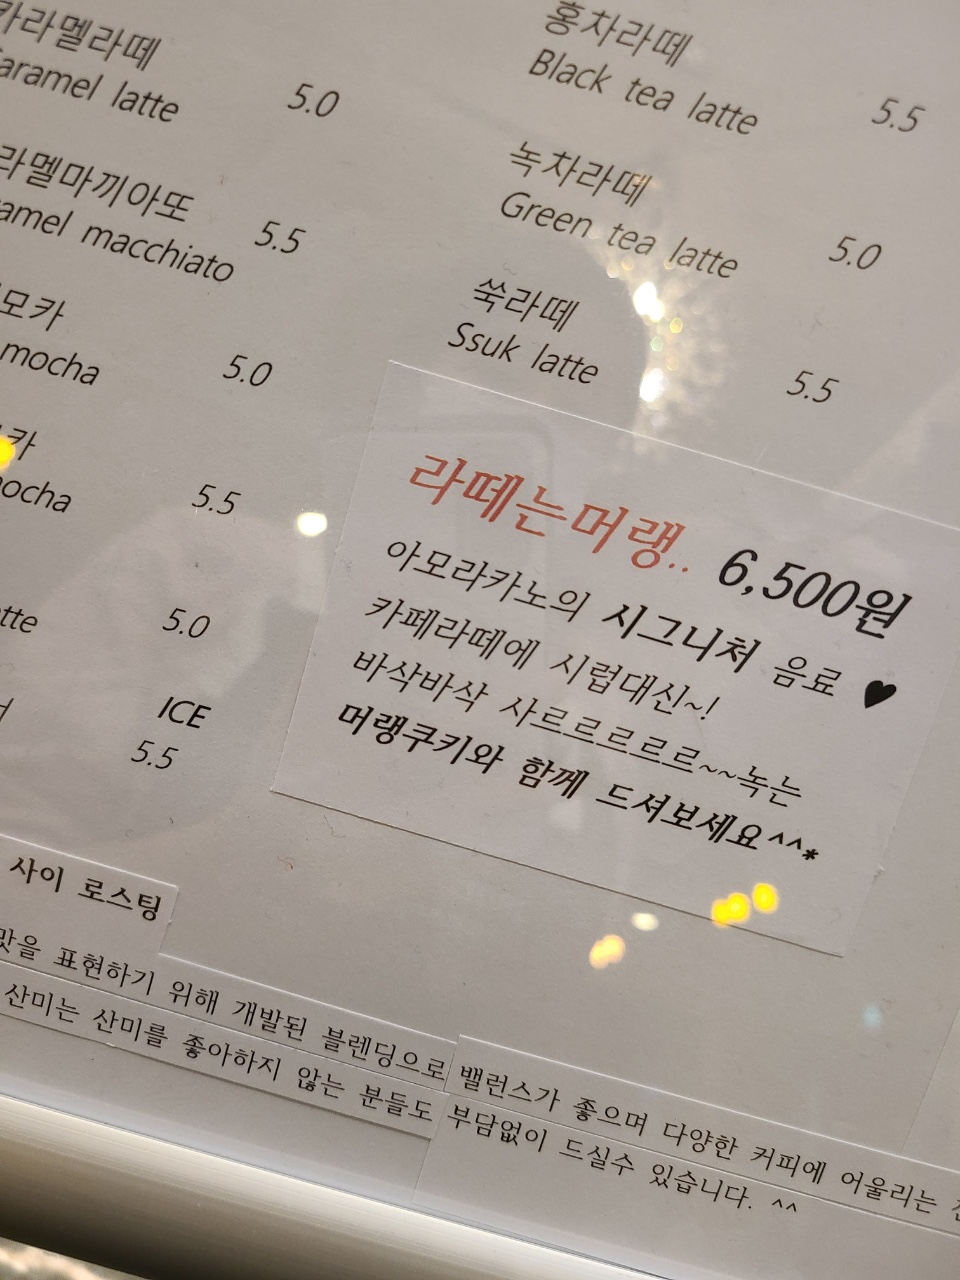 카라멜라떼
Caramel latte 5.0
라멜마끼아또
amel macchiato 5.5
모카
mocha 5.0
카
mocha 5.5
tte 5.0
ICE
5.5
홍차라떼
Black tea latte 5.5
녹차라떼
Green tea latte 5.0
쑥라떼
Ssuk latte 5.5
라떼는머랭.. 6,500원
아모라카노의 시그니처 음료 ♥
카페라떼에 시럽대신~!
바삭바삭 사르르르르르~~녹는
머랭쿠키와 함께 드셔보세요^^*
사이 로스팅
맛을 표현하기 위해 개발된 블렌딩으로 밸런스가 좋으며 다양한 커피에 어울리는
산미는 산미를 좋아하지 않는 분들도 부담없이 드실수 있습니다. ^^